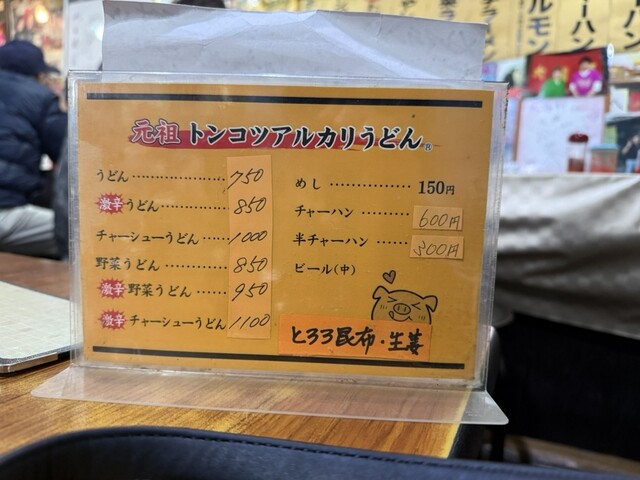 元祖 トンコツアルカリうどん®
うどん ………………… 750
激辛 うどん ………… 850
チャーシューうどん …… 1000
野菜うどん ………… 850
激辛 野菜うどん …… 950
激辛 チャーシューうどん 1100
めし …………… 150円
チャーハン ……… 600円
半チャーハン …… 300円
ビール(中)
とろろ昆布・生姜